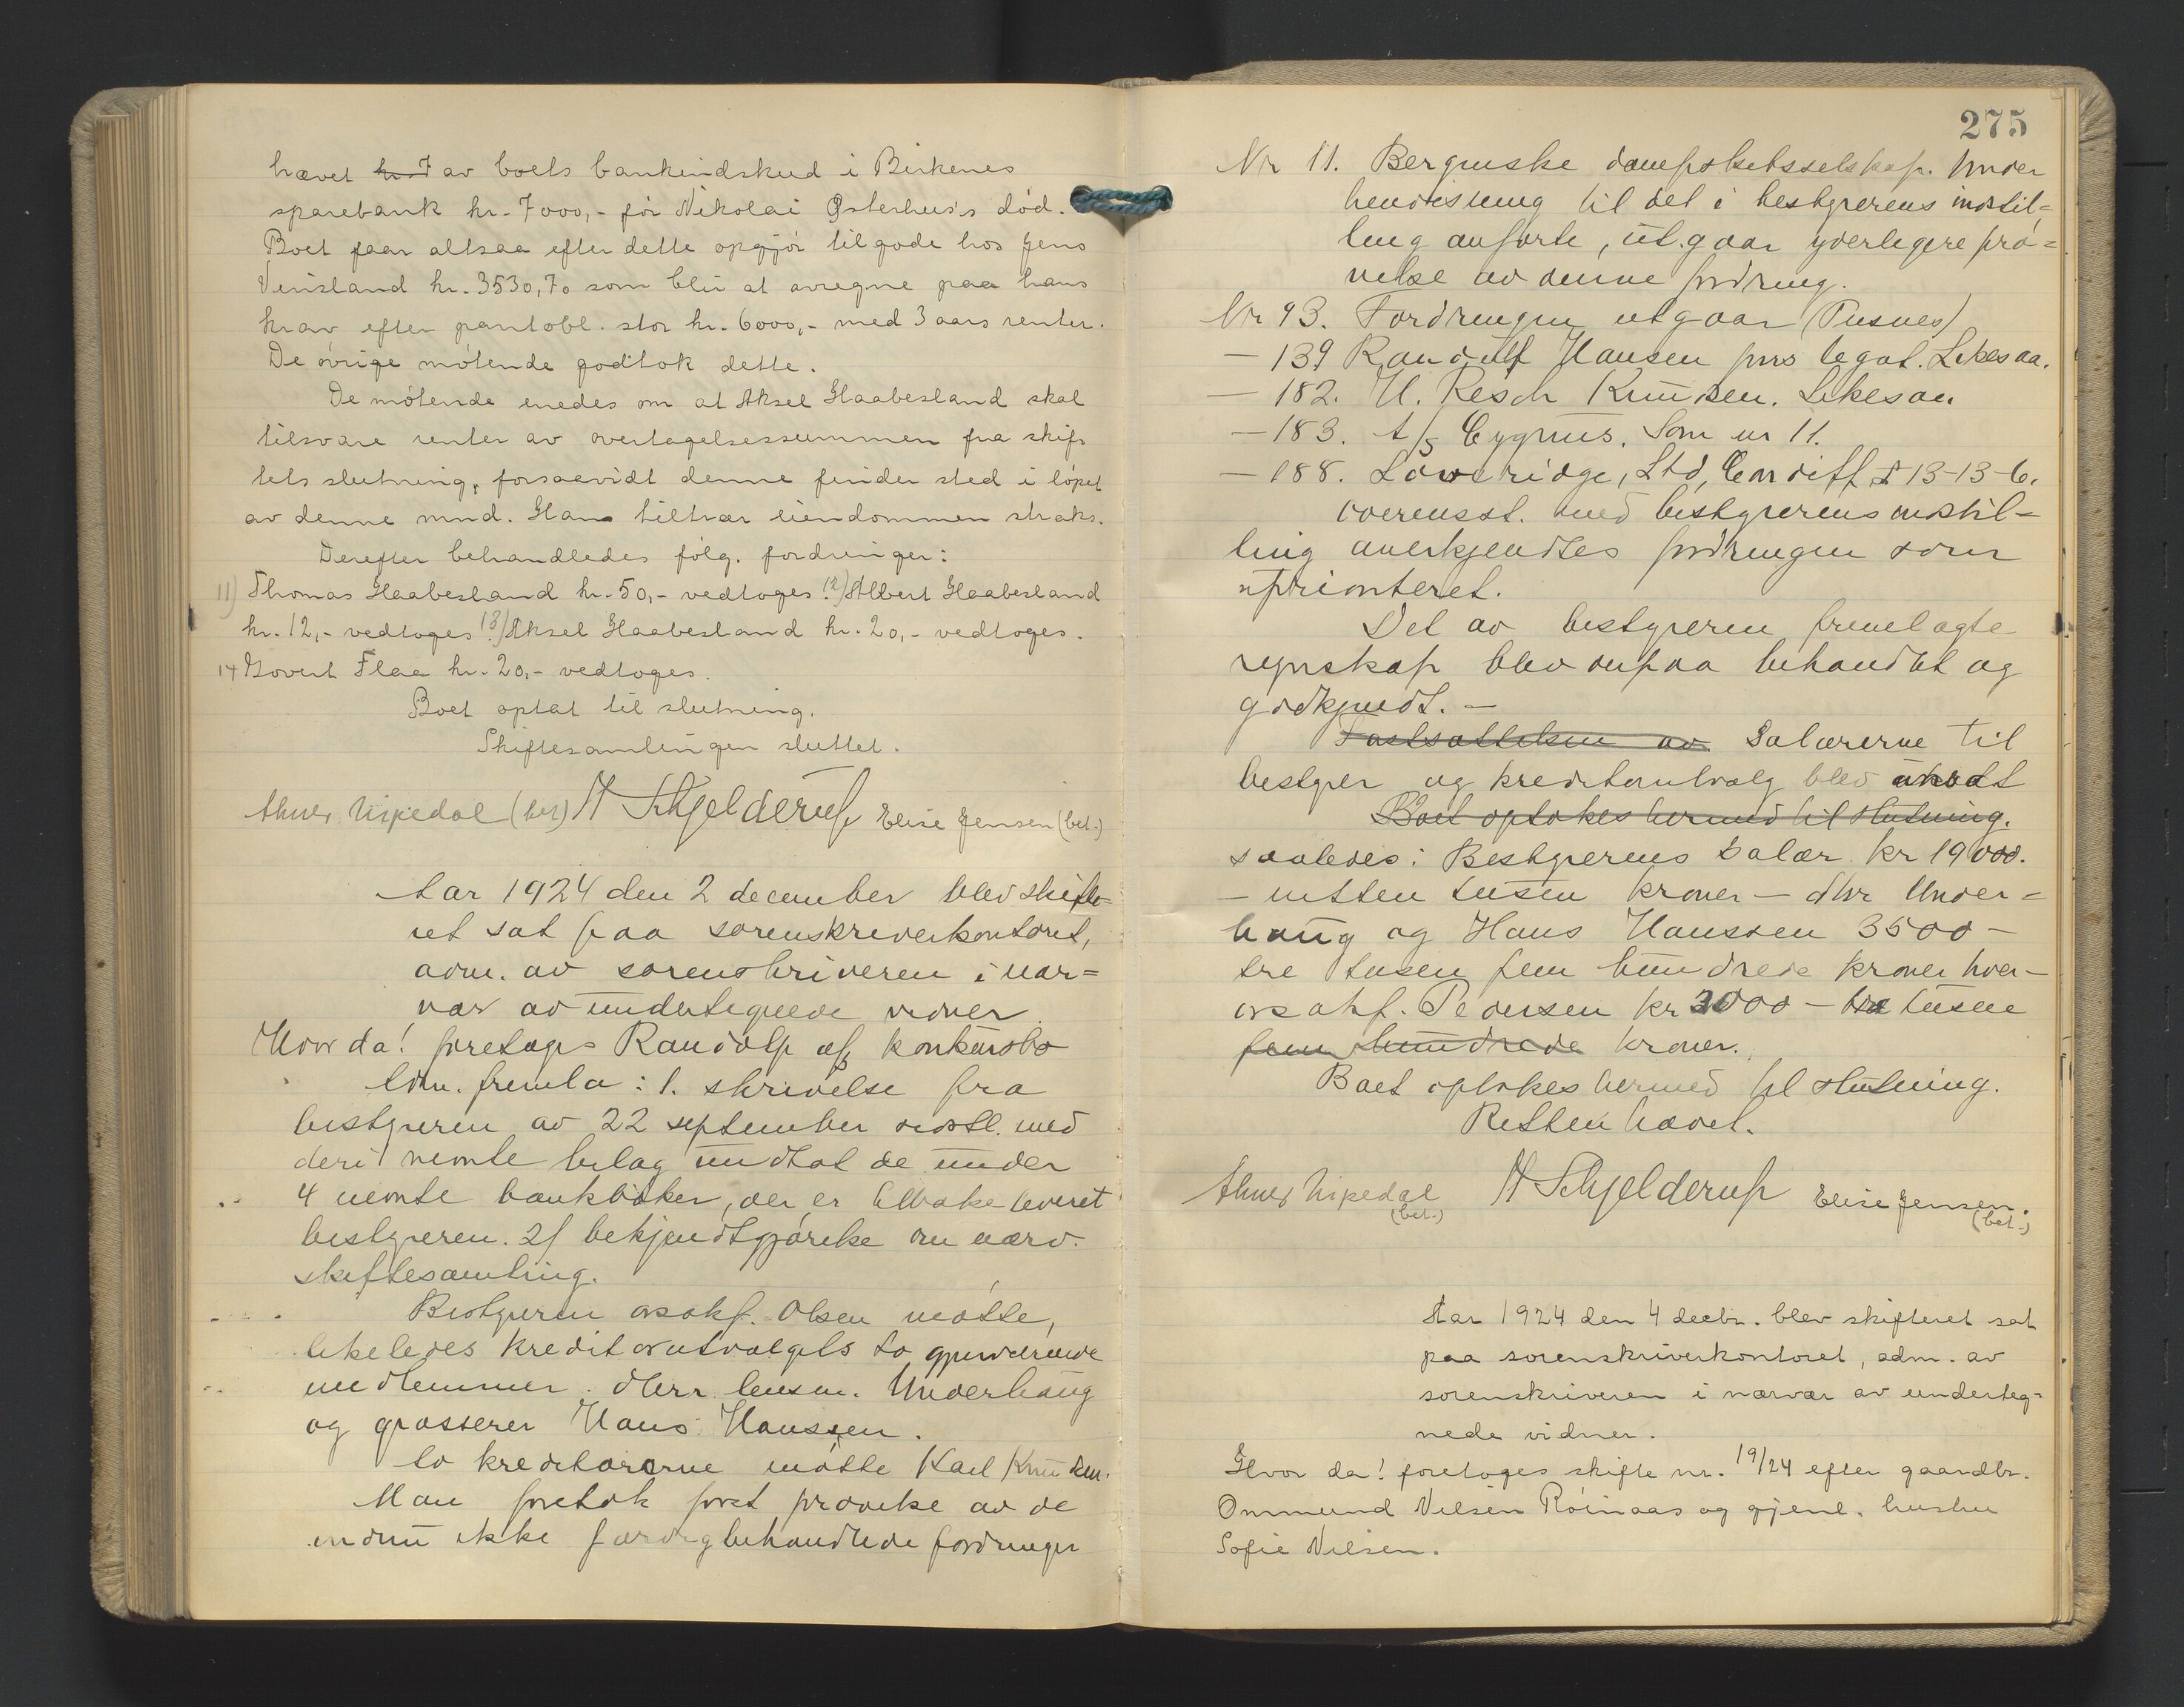 hævet av boets bankindskud i Birkenes
sparebank kr. 7000,- før Nikolai Østerhus's død.
Boet faar altsaa efter dette opgjør tilgode hos Jens
Verisland kr. 3530,70 som blir at avregne paa hans
krav efter pantobl. stor kr. 6000,- med 3 aars renter.
De øvrige møtende godtok dette.
De møtende enedes om at Aksel Haabesland skal
tilsvare renter av overtagelsessummen fra skif-
tets slutning, forsaavidt denne finder sted i løpet
av denne mnd. Han tiltrær eiendommen straks.
Derefter behandledes følg. fordringer:
11) Thomas Haabesland kr. 50,- vedtoges. 12) Albert Haabesland
kr. 12,- vedtoges. 13) Aksel Haabesland kr. 20,- vedtoges.
14 Govert Flaa kr. 20,- vedtoges.
Boet optat til slutning.
Skiftesamlingen sluttet.
Nipedal (bet) H Schjelderup Elise Jensen (bet.)
Aar 1924 den 2 december blev skifte-
ret sat paa sorenskriverkontoret,
adm. av sorenskriveren i nær-
vær av undertegnede vidner.
Hvor da! foretoges Randolf a/s konkursbo
Adm. fremla: 1. skrivelse fra
bestyreren av 22 september sidstl. med
deri nevnte bilag undtat de under
4 nevnte bankbøker, der er tilbakeleveret
bestyreren. 2/ bekjendtgjørelse om nærv.
skiftesamling.
Bestyreren o.r.sakf. Olsen møtte,
likeledes kreditorutvalgets to gjenværende
medlemmer. Herr lensm. Underhaug
og grosserer Hans Hanssen.
Av kreditorerne møtte Karl Knudsen.
Man foretok først prøvelse av de
endnu ikke færdigbehandlede fordringer
275
Nr 11. Bergenske dampskibsselskap. Under
henvisning til det i bestyrerens indstil=
ling anførte, utgaar yderligere prø=
velse av denne fordring.
Nr 93. Fordringen utgaar (Pusnes)
— 139 Randulf Hansens legat. Likesaa.
— 182. H. Resch Knudsen. Likesaa
— 183. A/S Cygnus. Som nr 11.
— 188. Lowridge, Ltd, Cardiff £ 13-13-6.
overensst. med bestyrerens indstil-
ling anerkjendtes fordringen som
uprioriteret.
Det av bestyreren fremlagte
regnskap blev derpaa behandlet og
godkjendt. —
Fastsættelsen av Salærerne til
bestyrer og kreditorutvalg blev ansat
Boet optokes hermed til slutning.
saaledes: Bestyrerens salær kr 19000.
— nitten tusen kroner — dhr Under=
haug og Hans Hanssen 3500 —
tre tusen fem hundrede kroner hver —
o.r.sakf. Pedersen kr 3000 — tre tusen
fem hundrede kroner.
Boet optokes hermed til slutning.
Retten hævet.
Nipedal (bet.) H Schjelderup Elise Jensen. (bet.)
Aar 1924 den 4 decbr. blev skifteret sat
paa sorenskriverkontoret, adm. av
sorenskriveren i nærvær av underteg-
nede vidner.
Hvor da! foretoges skifte nr. 19/24 efter gaardbr.
Ommund Nilsen Røinaas og gjenl. hustru
Sofie Nilsen.